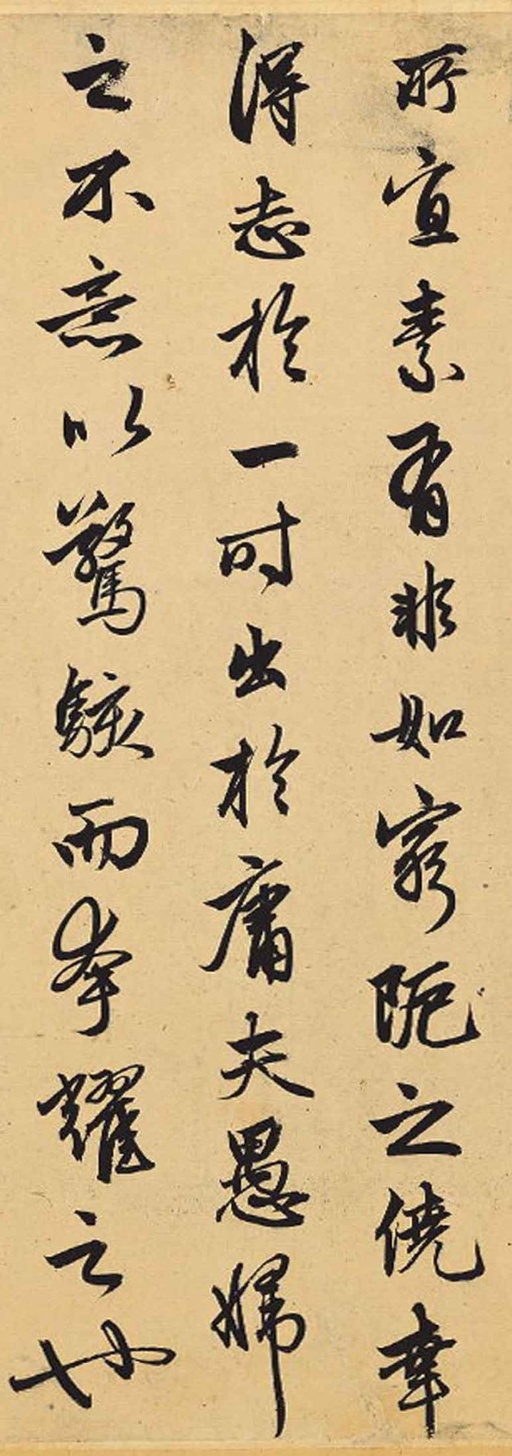 所宜素有非如窮阨之僥幸
得志於一時出於庸夫愚婦
之不意以驚駭而夸耀之也